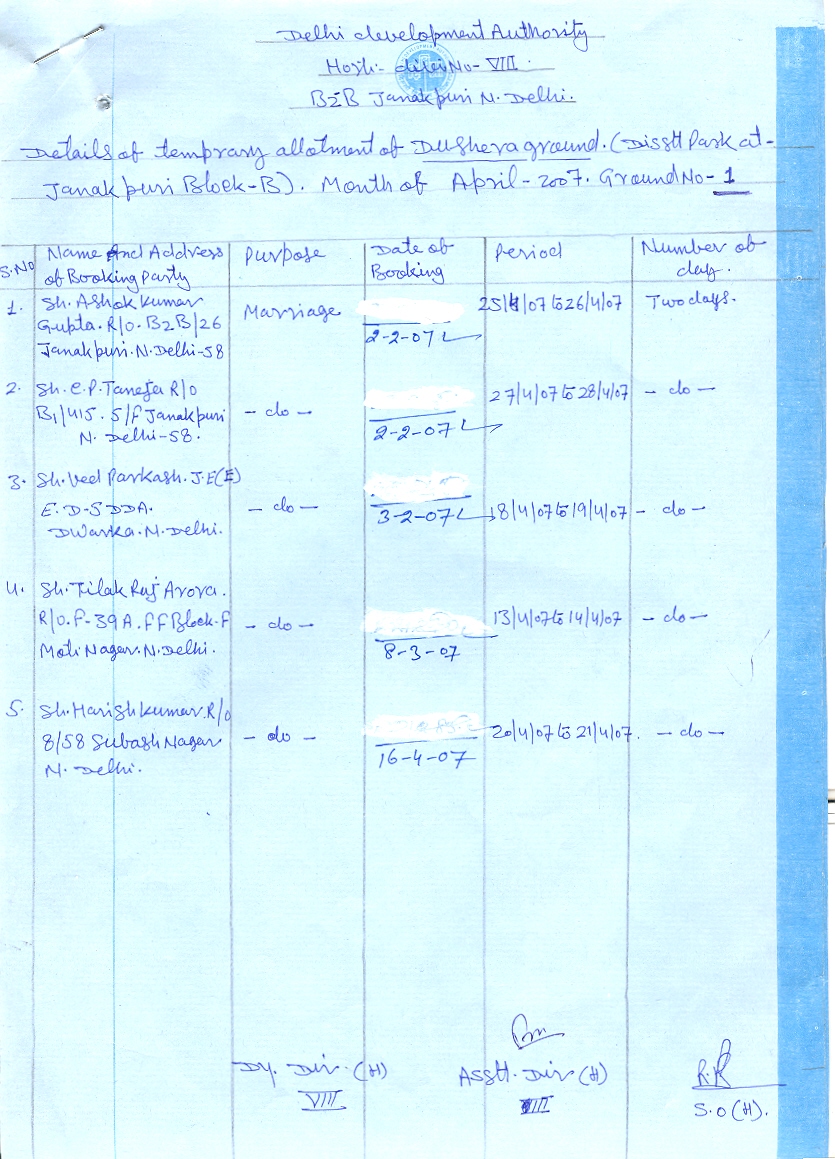 Delhi development Authority
Horti- No- VIII.
B2B Janakpuri N. Delhi.
Details of temprary allotment of Dushera ground. (Disstt Park at-
Janakpuri Block-B). Month of April-2007. Ground No-1
S.No Name And Address of Booking Party Purpose Date of Booking Period Number of day.
1. Sh. Ashok Kumar Marriage 25/4/07 to 26/4/07 Two days.
Gupta. R/O. B2B/26
Janakpuri. N. Delhi-58 2-2-07
2. Sh. C.P. Taneja R/O 27/4/07 to 28/4/07 - do -
B1/415. S/F Janakpuri - do -
N. Delhi-58. 2-2-07
3. Sh. Ved Parkash. J.E(E)
E.D-5 DDA. - do - 3-2-07 18/4/07 to 19/4/07 - do -
Dwarka. N. Delhi.
4. Sh. Tilak Raj Arora.
R/O. F-39A. FF Block-F - do - 13/4/07 to 14/4/07 - do -
Moti Nagar. N. Delhi. 8-3-07
5. Sh. Harish Kumar. R/O
8/58 Subash Nagar - do - 20/4/07 to 21/4/07. - do -
N. Delhi. 16-4-07
Dy. Dir. (H) Asstt. Dir (H)
VIII VIII S.O (H).